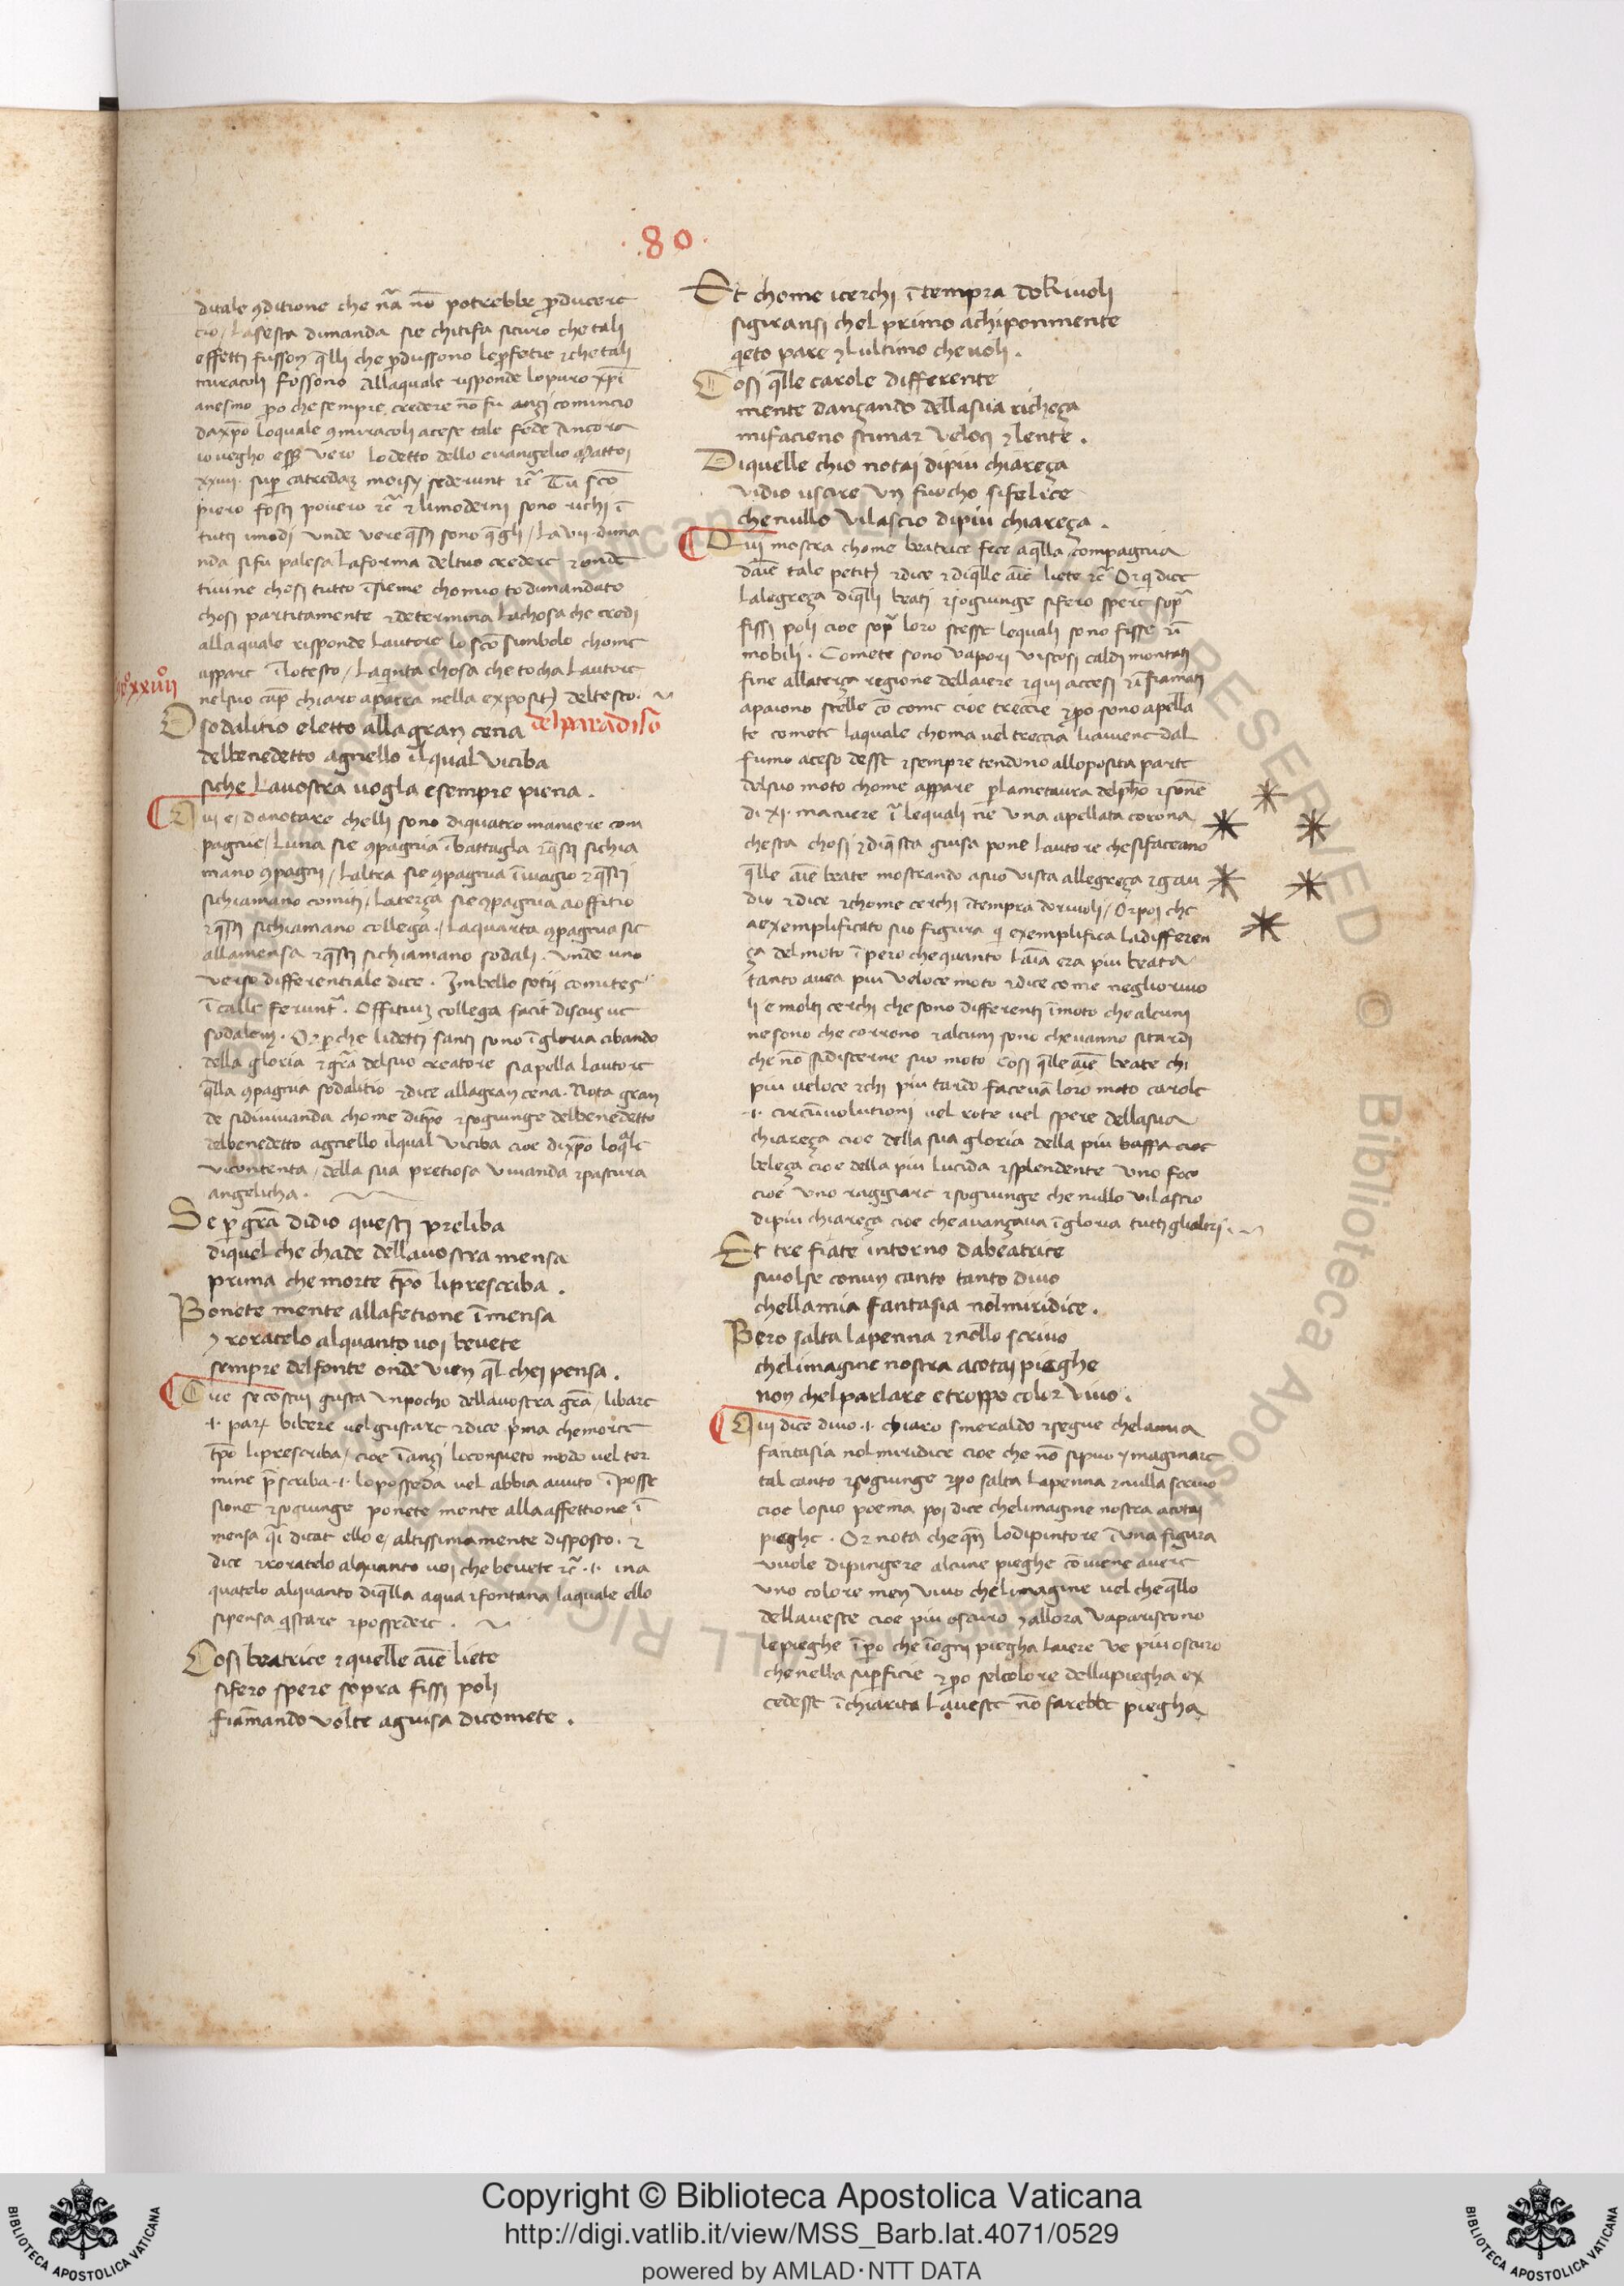 .80.
di tale 9ditione che nr̃a nō potrebbe producere
cio / La sesta dimanda sie chi tifa sicuro che tali
effetti fusson q̄lli che produssono le profetie ⁊ che tali
miracoli fossono Allaquale risponde lo puro xp̄i
anesmo po che sempre credere nō fu anzi comincio
da xp̄o loquale 9 miracoli acese tale fede Ancora
io vegho esser vero lo detto dello evangelio Mattei
xxiii. super catredaz moisy sederunt ⁊c̃ Tu sc̄o
piero fosti povero ⁊c̃ ⁊ li moderni sono richi ī
tutti i modi unde vere q̄sti sono q̄gli / La vii. dima
nda si fu palesa la forma del tuo credere ⁊ onde
ti vine chosi tutto īsieme chomio to dimandato
chosi partitamente ⁊ determina la chosa che credi
alla quale risponde lautore lo sc̄o simbolo chome
appare ī lo testo / La q̄nta chosa che tocha lautore
nel suo cap̄ chiaro aparra nella exposit̄ del testo.
xxiiii
O sodalitio eletto alla gran cena del paradiso
del benedetto agniello il qual vi ciba
si che la vostra vogla e sempre piena .
Qui e / da notare chelli sono di quatro maniere com
pagnie / Luna sie 9pagnia ī battagla ⁊ q̄sti sichia
mano 9pagni / Laltra sie 9pagnia ī viagio ⁊ q̄sti
si chiamano comiti / La terza sie 9pagnia ī offitio
⁊ q̄sti si chiamano collega . / La quarta 9pagnia sie
alla mensa ⁊ q̄sti si chiamano sodali . Unde uno
verso differentiale dice . In bello sotii comites
ī calle ferunt̃ . Offitiuz collega facit discus uc
sodalem . Or p che li detti santi sono ī gloria cibando
della gloria ⁊ gr̄a del suo creatore si apella lautore
q̄lla 9pagnia sodalitio ⁊ dice alla gran cena . Nota gran
de si di vivanda chome di tp̄o ⁊ sogiunge del benedetto
del benedetto agniello il qual vi ciba cioe di xp̄o lo q̄le
vi contenta / della sua pretiosa vivanda ⁊ pastura
angelicha .
Se p gr̄a di dio questi preliba
di quel che chade della vostra mensa
prima che morte tp̄o li prescriba .
Ponete mente alla fetione īmensa
⁊ roratelo alquanto voi bevete
sempre del fonte onde vien q̄l chei pensa .
Cioe se costui gusta un pocho della vostra gr̄a / libare
.i. par bibere vel gustare ⁊ dice p̄ma che morte
tp̄o li prescriba / cioe īanzi lo consueto modo vel ter
mine p̄scriba .i. lo posseda vel abbia avuto ī posse
sione ⁊ sogiunge ponete mente alla affettione ī
mensa q̄i dicat ello e / altissimamente disposto . ⁊
dice ⁊ roratelo alquanto voi che bevete ⁊c̃ .i. ina
quatelo alquanto di q̄lla aqua ⁊ fontana la quale ello
si pensa q̄stare ⁊ possedere .
Cosi beatrice ⁊ quelle aīe liete
si fero spere sopra fissi poli
fiāmando volte a guisa di comete .
Et chome i cerchi ī tempra doRiuoli
si giransi chel primo a chi ponmente
q̄eto pare ⁊ lultimo che voli .
Cosi q̄lle carole differente
mente danzando della sua richeza
mi facieno stimar veloci ⁊ lente .
Di quelle chio notai di piu chiareza
vidio uscire un fuocho si felice
che nullo vi lascio di piu chiareza .
Qui mostra chome beatrice fece a q̄lla compagnia
daīe tale petit̄ ⁊ dice ⁊ di q̄lle aīe liete ⁊c̃ Or q̄ dice
lalegreza di q̄lli beati ⁊ sogiunge si fero spere sop̄
fissi poli cioe sop̄ loro stesse le quali sono fisse ⁊ ī
mobili . Comete sono vapori viscosi caldi montati
fine alla terza regione dellaiere ⁊ qui accesi ⁊ īfiamati
apaiono stelle cō come cioe treccie ⁊ po sono apella
te comete la quale choma vel treccia li aviene dal
fumo aceso desse ⁊ sempre tendono all oposita parte
del suo moto chome appare p la metaura del ph̄o ⁊ sonne
di xi. maniere ī le quali nē una apellata corona
che sta chosi ⁊ di q̄sta guisa pone lautore che si faceano
q̄lle aīe beate mostrando a suo vista allegreza ⁊ gau
dio ⁊ dice ⁊ chome cerchi ī tempra doriuoli / Or poi che
a exemplificato suo figura q̄ exemplifica la differen
za del moto ī pero che quanto laīa era piu beata
tanto avea piu veloce moto ⁊ dice come negli oriuo
li e molti cerchi che sono differenti ī moto che alcuni
ne sono che corrono ⁊ alcuni sono che vanno si tardi
che nō si discerne suo moto Cosi q̄lle aīe beate chi
piu veloce ⁊ chi piu tardo facevā loro moto carole
.i. circūvolutioni vel rote vel spere della sua
chiareza cioe della sua gloria della piu bassa cioe
beleza cioe della piu lucida ⁊ splendente uno foco
cioe uno raggiare ⁊ sogiunge che nullo vi lascio
di piu chiareza cioe che avanzava ī gloria tutti gli altri .
Et tre fiate intorno da beatrice
si volse con un canto tanto divo
che lla mia fantasia nol mi ridice .
Pero salta la penna ⁊ nollo scrivo
chel imagine nostra a cotai pieghe
non chel parlare e troppo color vivo .
Qui dice divo .i. chiaro smeraldo ⁊ segue che la mia
fantasia nol mi ridice cioe che nō si puo ymaginare
tal canto ⁊ sogiunge ⁊ po salta la penna ⁊ nulla scrivo
cioe lo suo poema poi dice chel imagine nostra a cotai
pieghe . Or nota che q̄n lo dipintore ī una figura
vuole dipingere alcune pieghe cōviene avere
uno colore men vivo chel imagine vel che q̄llo
della veste cioe piu oscuro ⁊ allora vapariscono
le pieghe ī po che ī ogni piegha laiere ve piu oscuro
che nella superficie ⁊ po sel colore della piegha ex
cedesse ī chiarita la veste nō farebbe piegha
Copyright © Biblioteca Apostolica Vaticana
http://digi.vatlib.it/view/MSS_Barb.lat.4071/0529
powered by AMLAD·NTT DATA
BIBLIOTECA APOSTOLICA VATICANA
BIBLIOTECA APOSTOLICA VATICANA